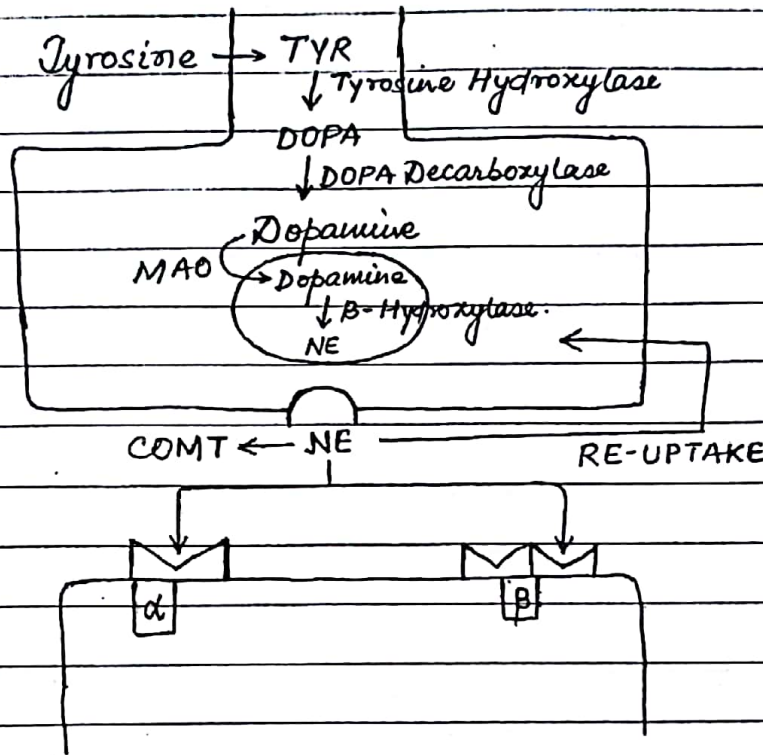 Tyrosine → TYR
↓ Tyrosine Hydroxylase
DOPA
↓ DOPA Decarboxylase
Dopamine
MAO
Dopamine
↓ β-Hydroxylase.
NE
COMT ← NE
RE-UPTAKE
α
β